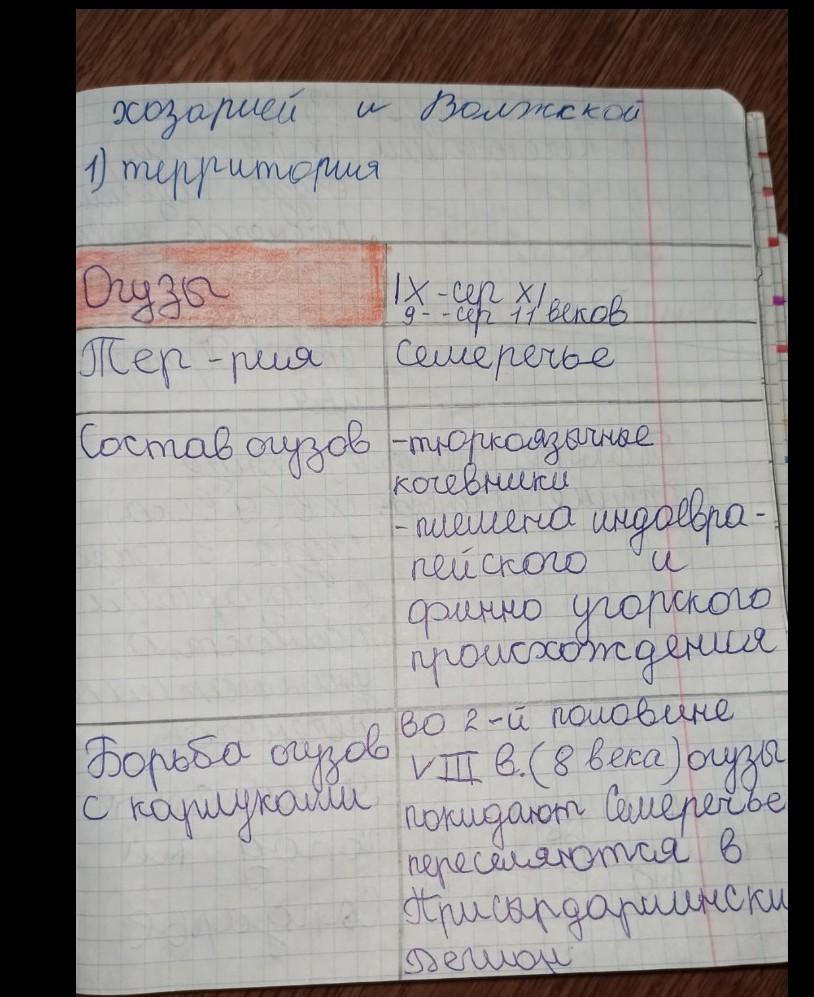 хозарией и Волжской
1) территория
Огузы
IX - сер XI
9 - - сер 11 веков
Тер - рия
Семеречье
Состав огузов
- тюркоязычные
кочевники
- племена индоевра -
пейского и
финно угорского
происхождения
Борьба огузов
с карлуками
во 2-й половине
VIII в. (8 века) огузы
покидают Семеречье
переселяются в
Присырдарьински
регион